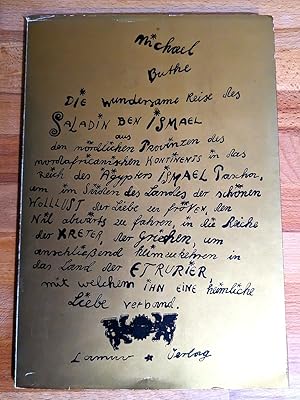 Michael
Buthe
Die wundersame Reise des
SALADIN BEN ISMAEL
aus
den nördlichen Provinzen des
nordafrikanischen KONTINENTS in das
Reich des Ägypters ISMAEL Pascha,
um im Süden des Landes der schönen
WOLLUST der Liebe zu frönen, den
Nil abwärts zu fahren, in die Reiche
der KRETER, der Griechen, um
anschließend heimzukehren in
das Land der ETRURIER,
mit welchem IHN EINE heimliche
Liebe verband.
Lamuv Verlag